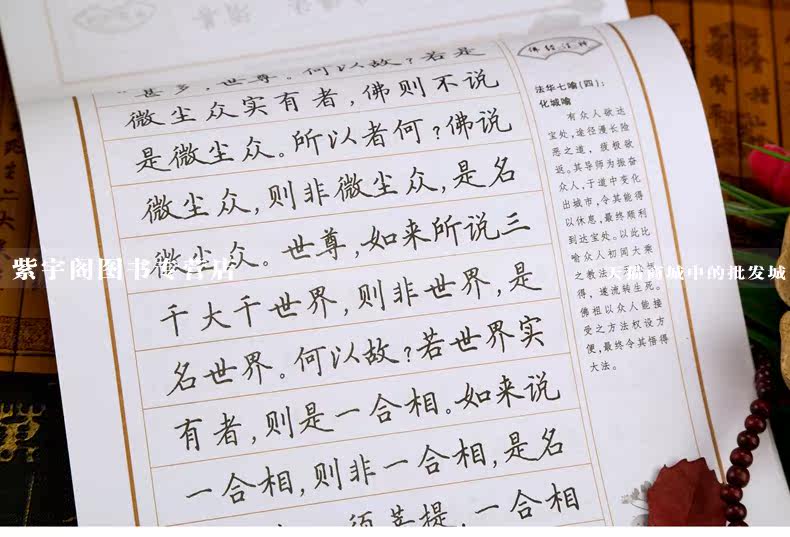 甚多,世尊。何以故?若是
微尘众实有者,佛则不说
是微尘众。所以者何?佛说
微尘众,则非微尘众,是名
微尘众。世尊,如来所说三
千大千世界,则非世界,是
名世界。何以故?若世界实
有者,则是一合相。如来说
一合相,则非一合相,是名
须菩提,一合相
法华七喻(四):
化城喻
有众人欲达
宝处,途径漫长险
恶之道,疲极欲
返。其导师为振奋
众人,于道中变化
出城市,令其能得
以休息,最终顺利
到达宝处。以此比
喻众人初闻大乘
之教法
得,遂流转生死。
佛祖以众人能接
受之方法权设方
便,最终令其悟得
大法。
紫宇阁图书专营店
天猫商城中的批发城